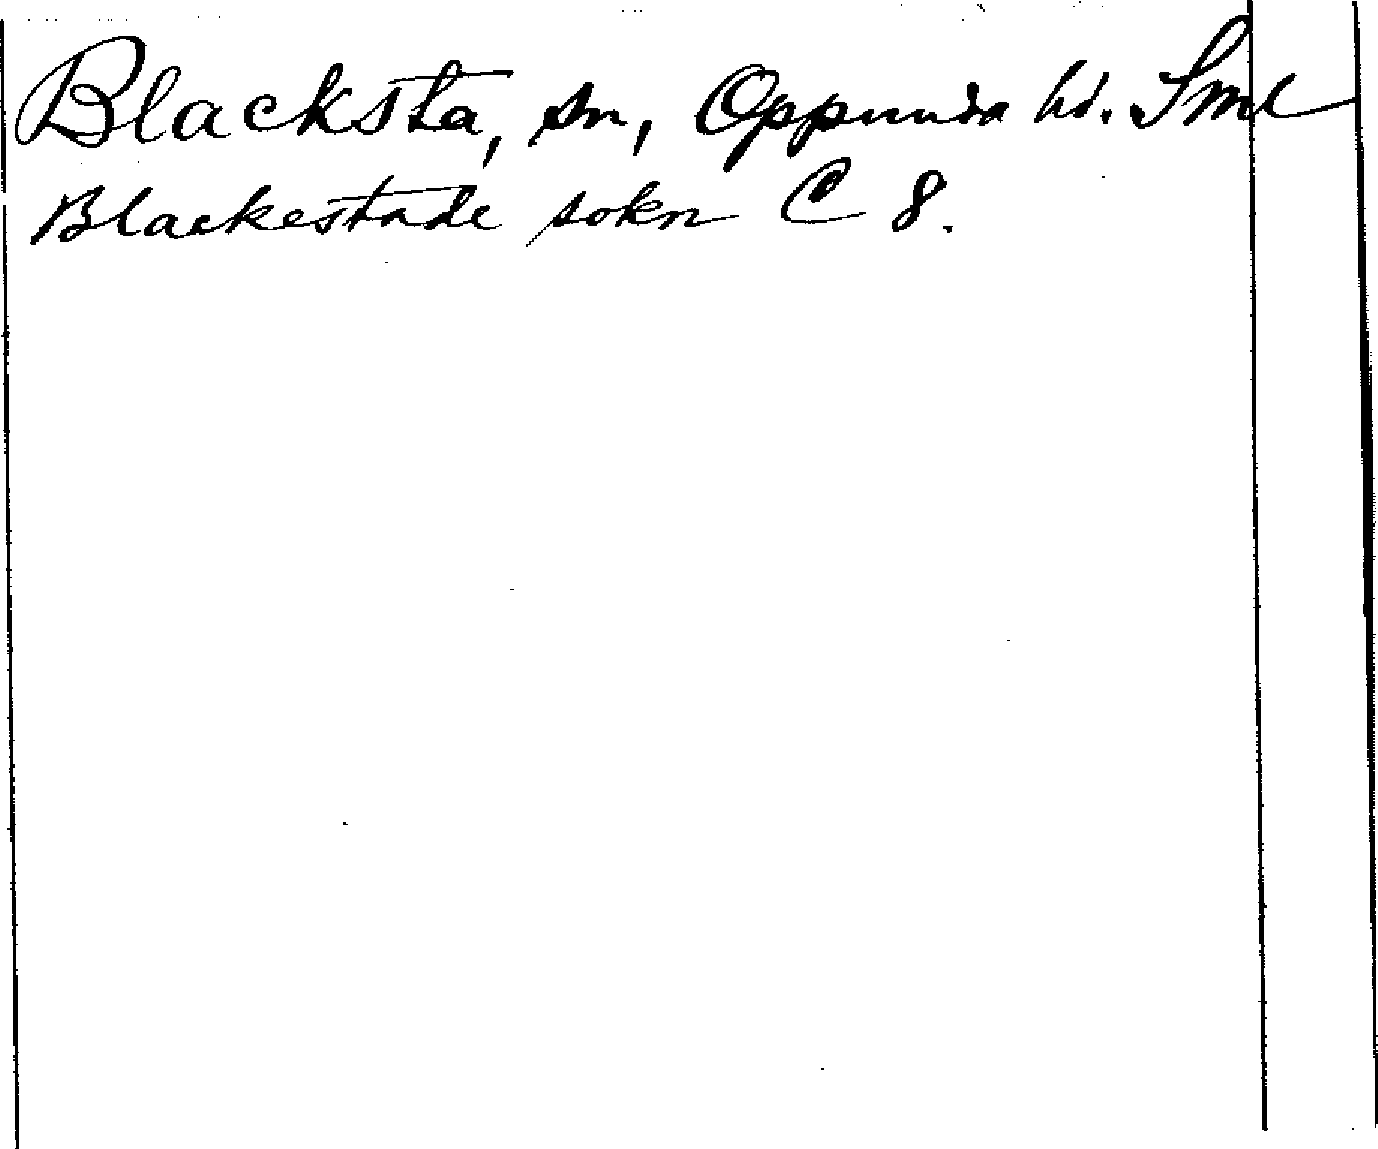 Blacksta, sn, Oppunda hd. Sml
Blackestade sokn C 8.